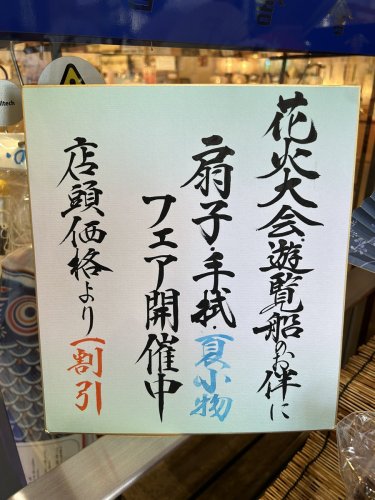 花火大会・遊覧船のお伴に
扇子・手拭・夏小物
フェア開催中
店頭価格より一割引